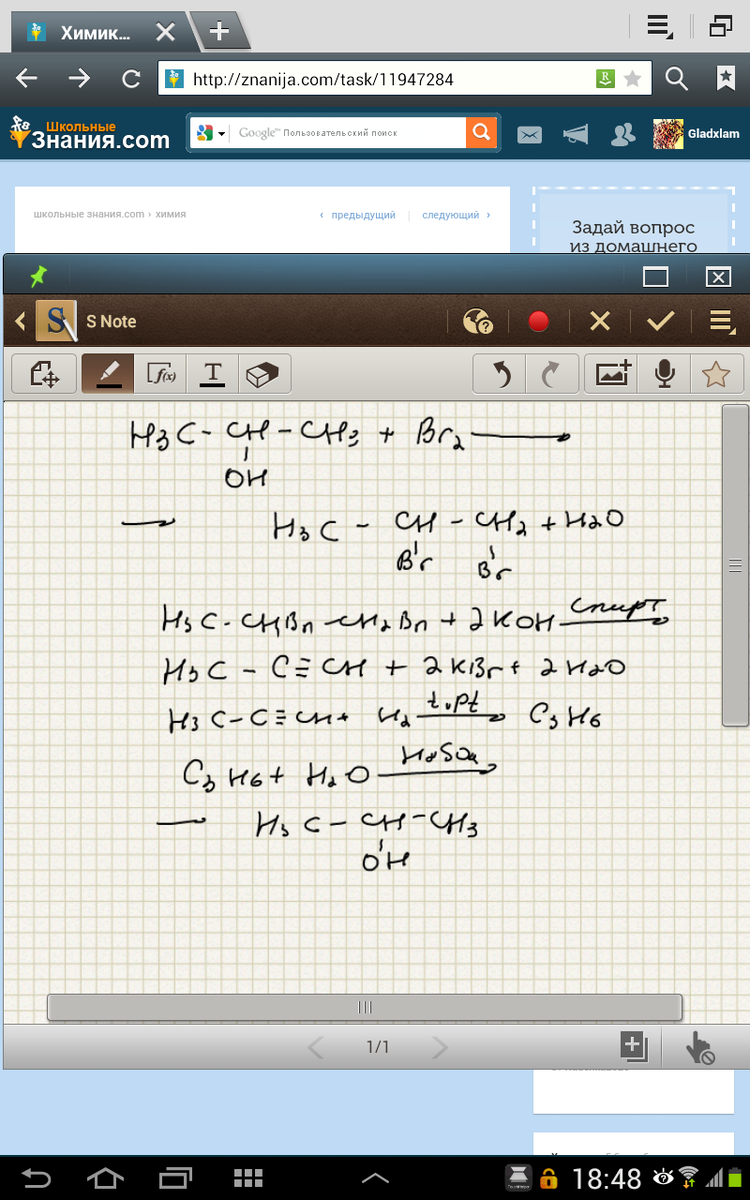 Химик...
http://znanija.com/task/11947284
Школьные
Знания.com
Google™ Пользовательский поиск
Gladxlam
школьные знания.com › химия
‹ предыдущий
следующий ›
Задай вопрос
из домашнего
S Note
f(x)
T
H3C - CH - CH3 + Br2 →
OH
→ H3C - CH - CH2 + H2O
Br Br
H3C - CHBr - CH2Br + 2KOH спирт →
H3C - C ≡ CH + 2KBr + 2H2O
H3C - C ≡ CH + H2 t, pt → C3H6
C3H6 + H2O H2SO4 →
→ H3C - CH - CH3
OH
1/1
18:48